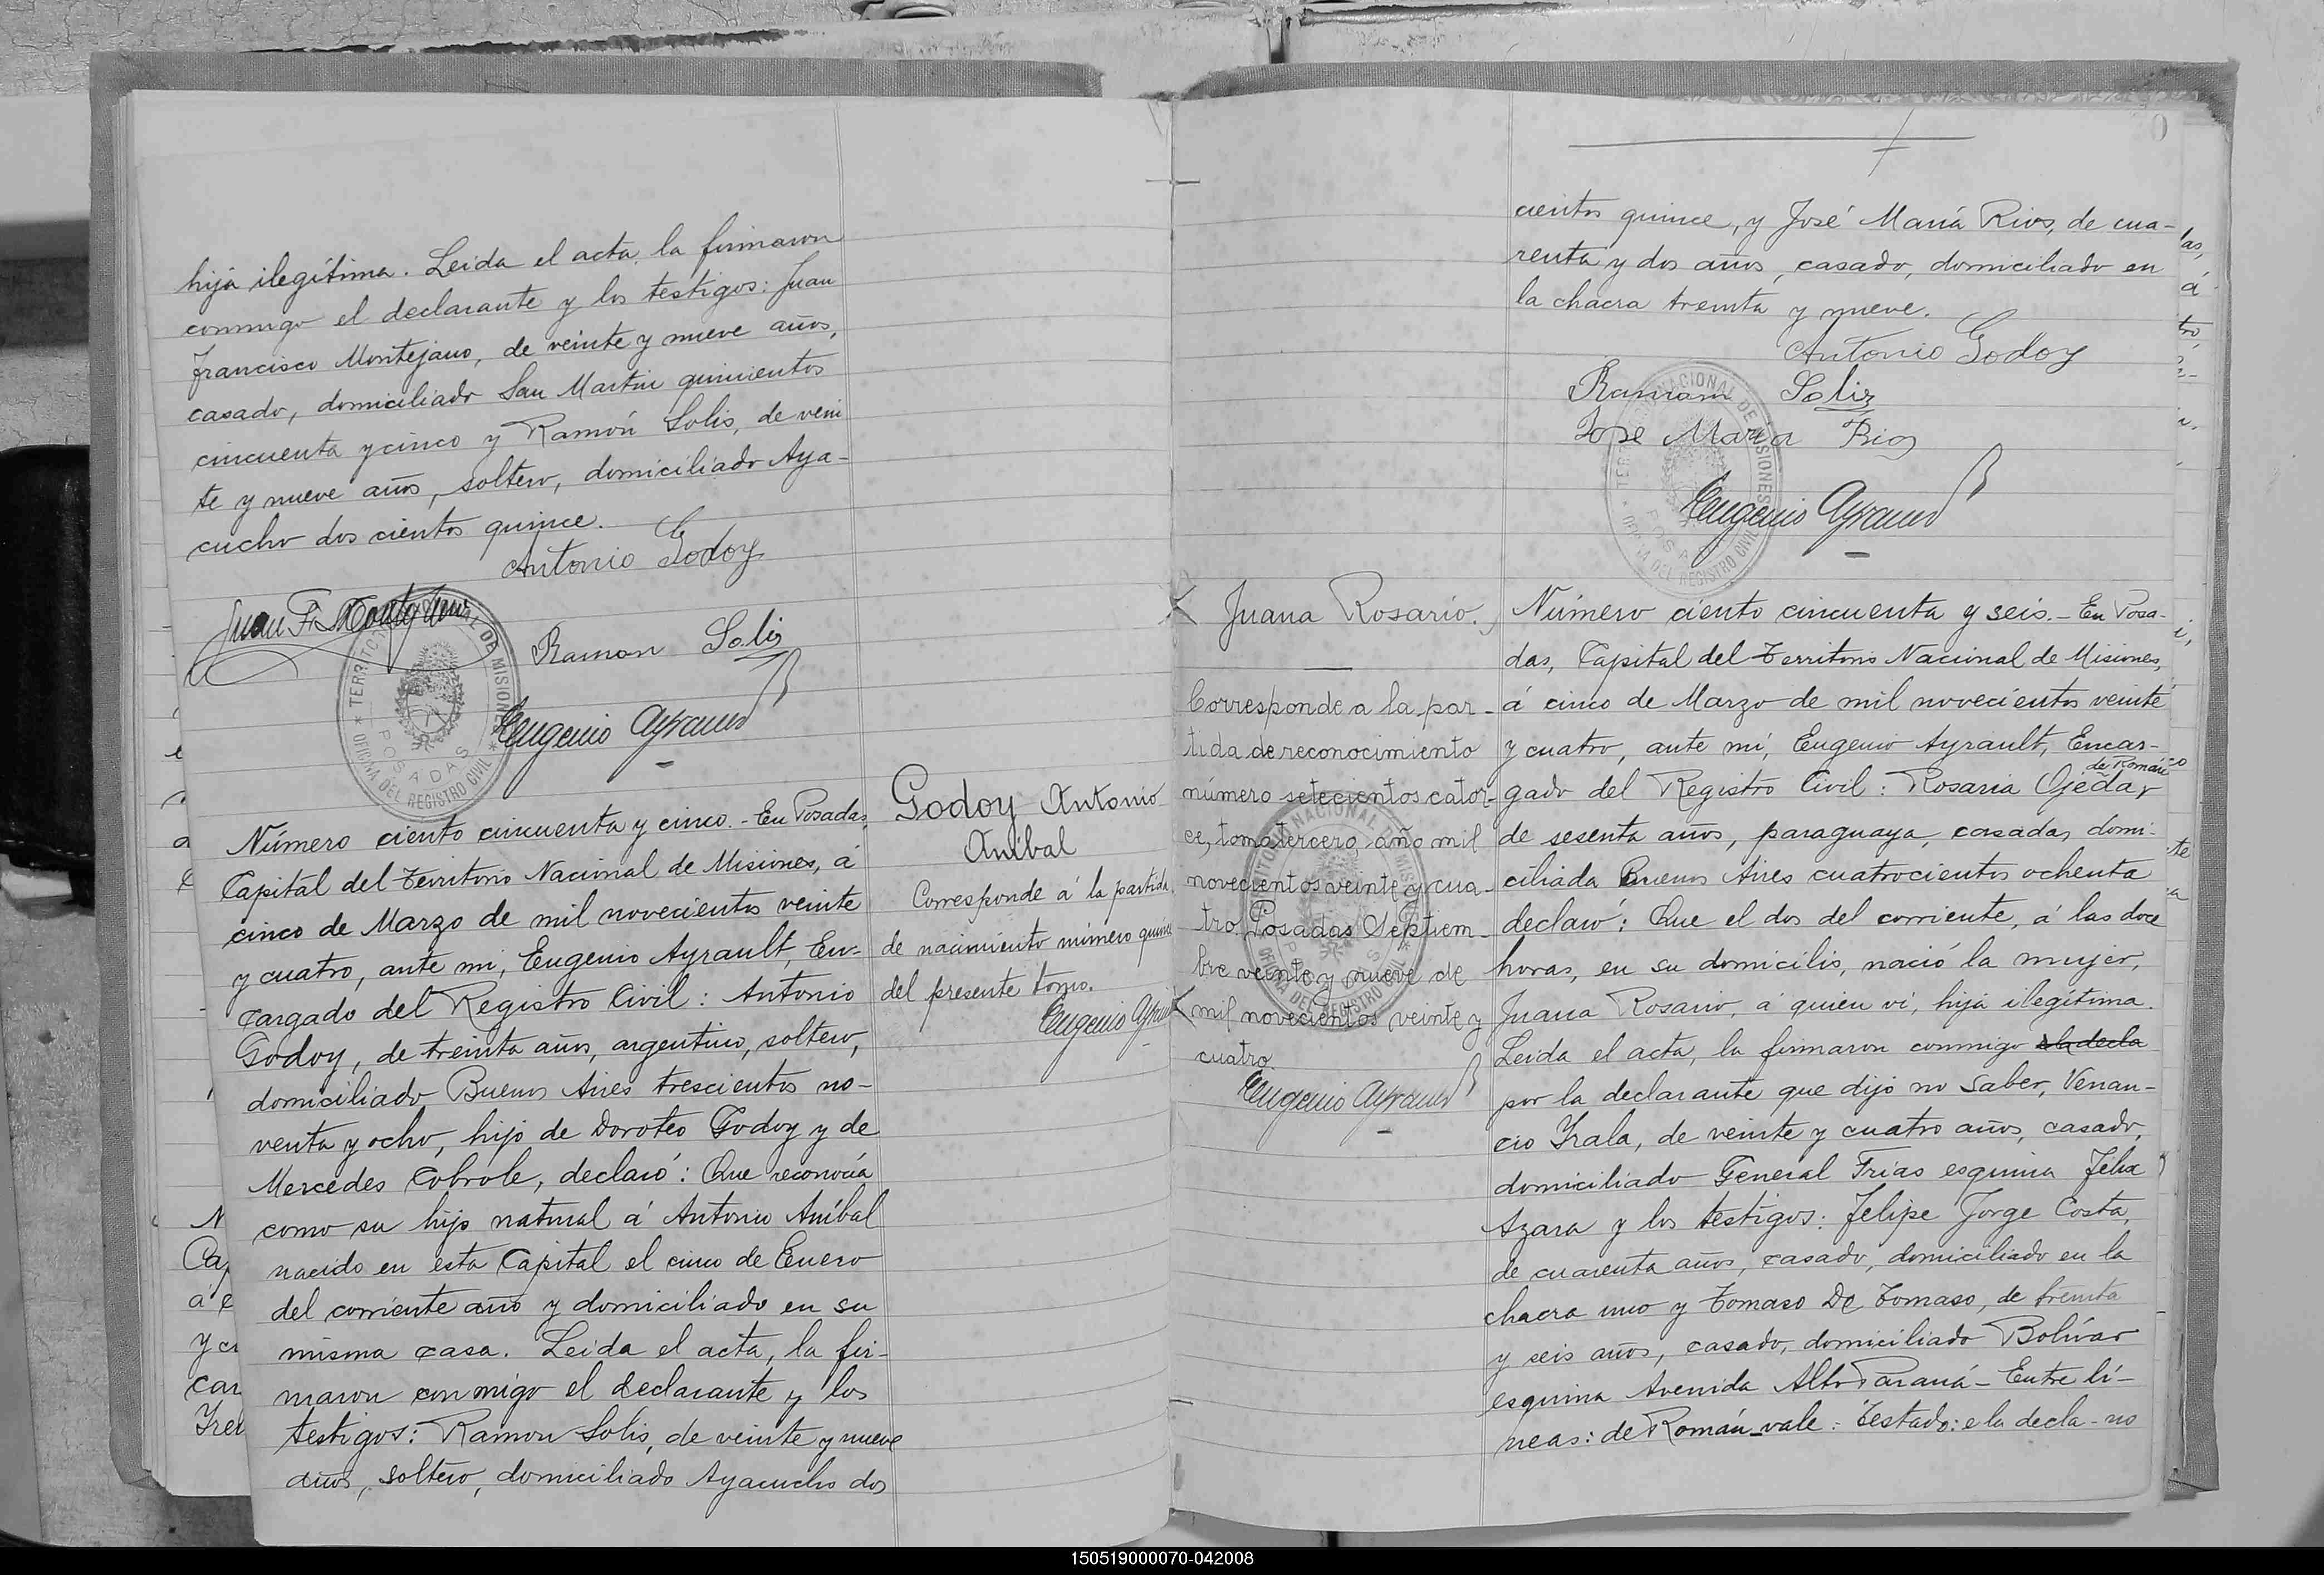 hija ilegítima. Leida el acta, la firmaron
conmigo el declarante y los testigos: Juan
Francisco Montejano, de veinte y nueve años,
casado, domiciliado San Martin quinientos
cincuenta y cinco y Ramón Solis, de vein
te y nueve años, soltero, domiciliado Aya-
cucho dos cientos quince.
Antonio Godoy
Juan F. Montejano
Ramon Solis
Eugenio Ayrault
TERRITORIO NACIONAL DE MISIONES
POSADAS
OFICINA DEL REGISTRO CIVIL
Número ciento cincuenta y cinco. - En Posadas,
Capital del Territorio Nacional de Misiones, á
cinco de Marzo de mil novecientos veinte
y cuatro, ante mi, Eugenio Ayrault, En-
cargado del Registro Civil: Antonio
Godoy, de treinta años, argentino, soltero,
domiciliado Buenos Aires trescientos no-
venta y ocho, hijo de Doroteo Godoy y de
Mercedes Cobrole, declaró: Que reconocía
como su hijo natural á Antonio Aníbal
nacido en esta Capital el cinco de Enero
del corriente año y domiciliado en su
misma casa. Leida el acta, la fir-
maron conmigo el declarante y los
testigos: Ramon Solis, de veinte y nueve
años, soltero, domiciliado Ayacucho dos
Godoy Antonio
Aníbal
Corresponde á la partida
de nacimiento número quince
del presente tomo.
Eugenio Ayrault
cientos quince, y José María Rios, de cua-
renta y dos años, casado, domiciliado en
la chacra treinta y nueve.
Antonio Godoy
Ramon Solis
Jose Maria Rios
Eugenio Ayrault
TERRITORIO NACIONAL DE MISIONES
POSADAS
OFICINA DEL REGISTRO CIVIL
Juana Rosario.
Corresponde a la par-
tida de reconocimiento
número setecientos cator-
ce, tomo tercero, año mil
novecientos veinte y cua-
tro. Posadas Septiem-
bre veinte y nueve de
mil novecientos veinte y
cuatro.
Eugenio Ayrault
Número ciento cincuenta y seis. - En Posa-
das, Capital del Territorio Nacional de Misiones,
á cinco de Marzo de mil novecientos veinte
y cuatro, ante mí, Eugenio Ayrault, Encar-
de Román
gado del Registro Civil: Rosaria Ojeda,
de sesenta años, paraguaya, casada, domi-
ciliada Buenos Aires cuatrocientos ochenta
declaró: Que el dos del corriente, á las doce
horas, en su domicilio, nació la mujer,
Juana Rosario, á quien vi, hija ilegítima.
Leida el acta, la firmaron conmigo e la decla
por la declarante que dijo no saber, Venan-
cio Irala, de veinte y cuatro años, casado,
domiciliado General Frias esquina Félix
Azara y los testigos: Felipe Jorge Costa,
de cuarenta años, casado, domiciliado en la
chacra uno y Tomaso De Tomaso, de treinta
y seis años, casado, domiciliado Bolívar
esquina Avenida Alto Paraná - Entre lí-
neas: de Román - vale: Testado: e la decla - no
150519000070-042008